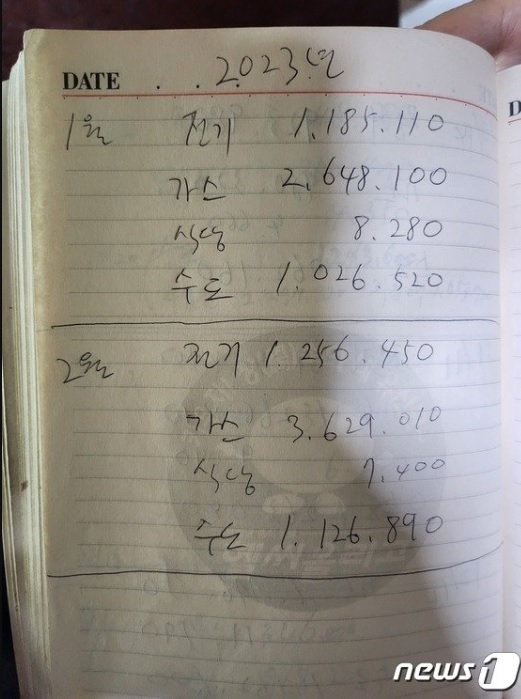 DATE . . . 2023년
1월 전기 1.185.110
가스 2.648.100
식당 8.280
수도 1.026.520
2월 전기 1.256.450
가스 3.629.010
식당 7.400
수도 1.126.890
news1